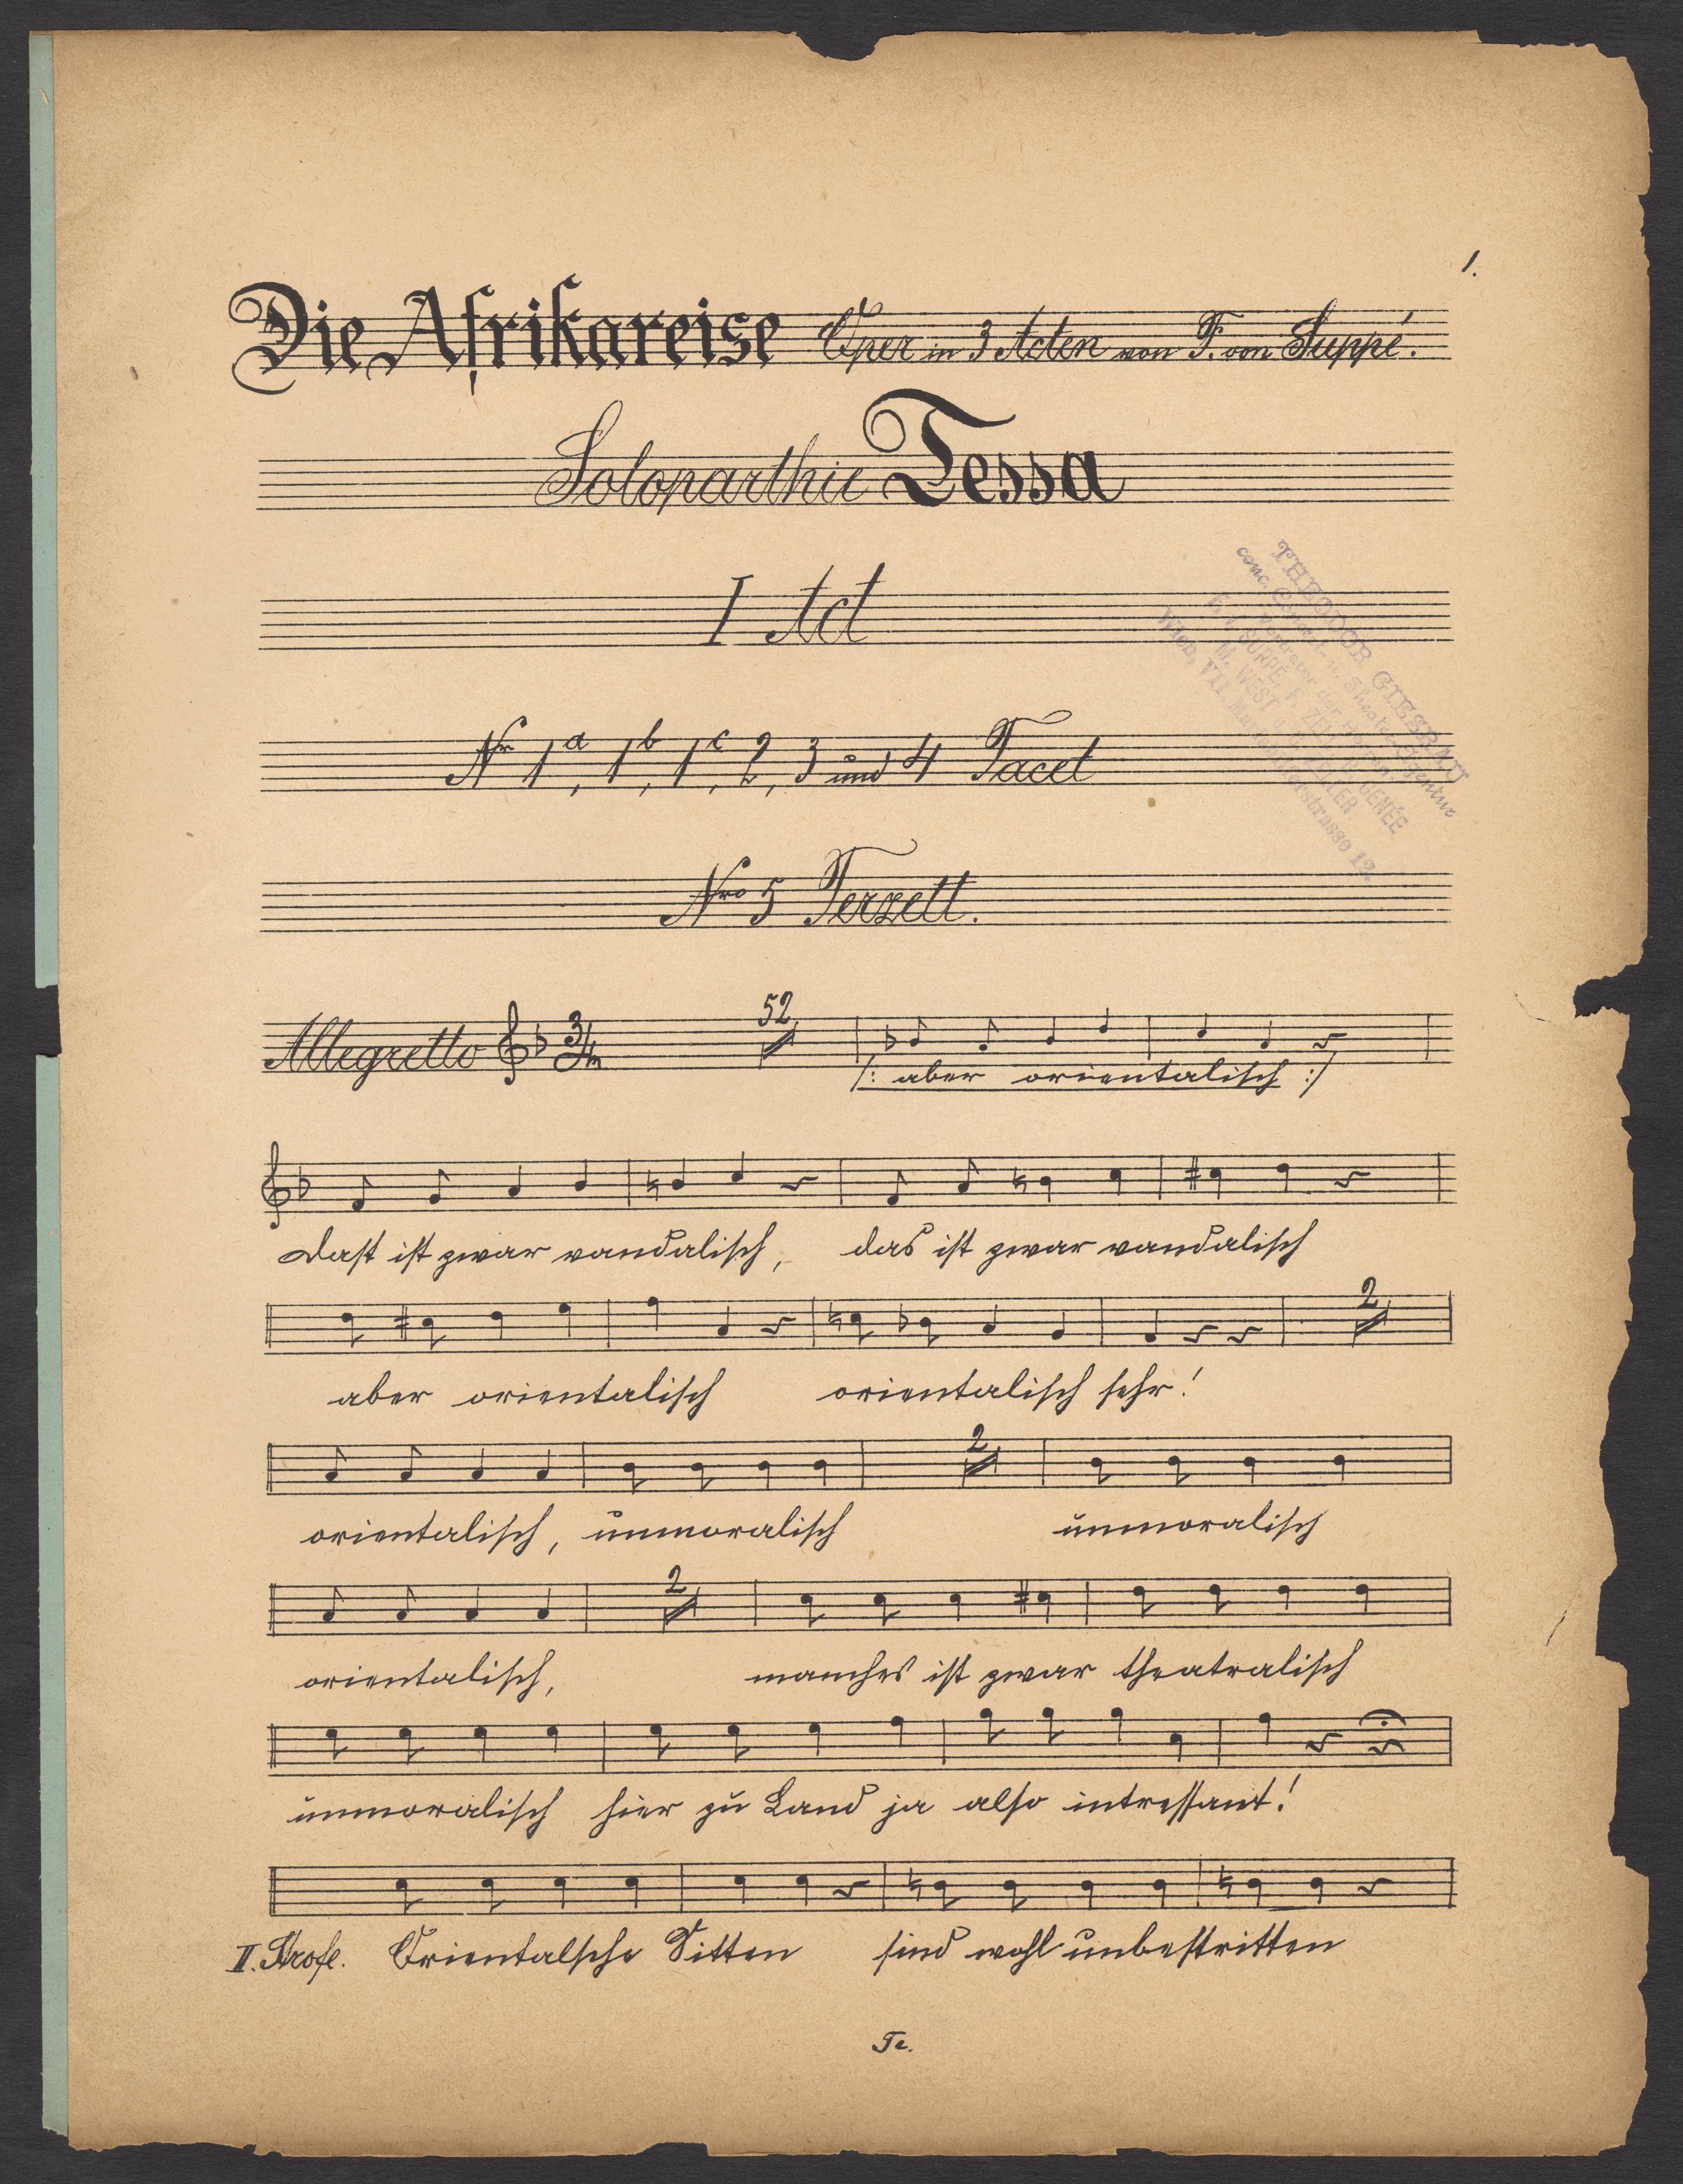 1.
Die Afrikareise Oper in 3 Acten von F. von Suppé.
Soloparthie Tessa
I Act
THEODOR GIESRAU
conc. Concert- u. Theater-Agentur
Vertreter der Herren
F. v. SUPPÉ, F. ZELL, R. GENÉE
M. WEST u. C. ZELLER
Wien, VII.
Nr 1a, 1b, 1c, 2, 3 und 4 Tacet
Nro 5 Terzett.
Allegretto 3/4 52
/: aber orientalisch :/
Dast ist zwar vandalisch, das ist zwar vandalisch
2
aber orientalisch orientalisch sehr!
2
orientalisch, unmoralisch unmoralisch
2
orientalisch, manches ist zwar theatralisch
unmoralisch hier zu Land ja also intressant!
II. Strofe. Orientalsche Sitten sind wohl unbestritten
Te.